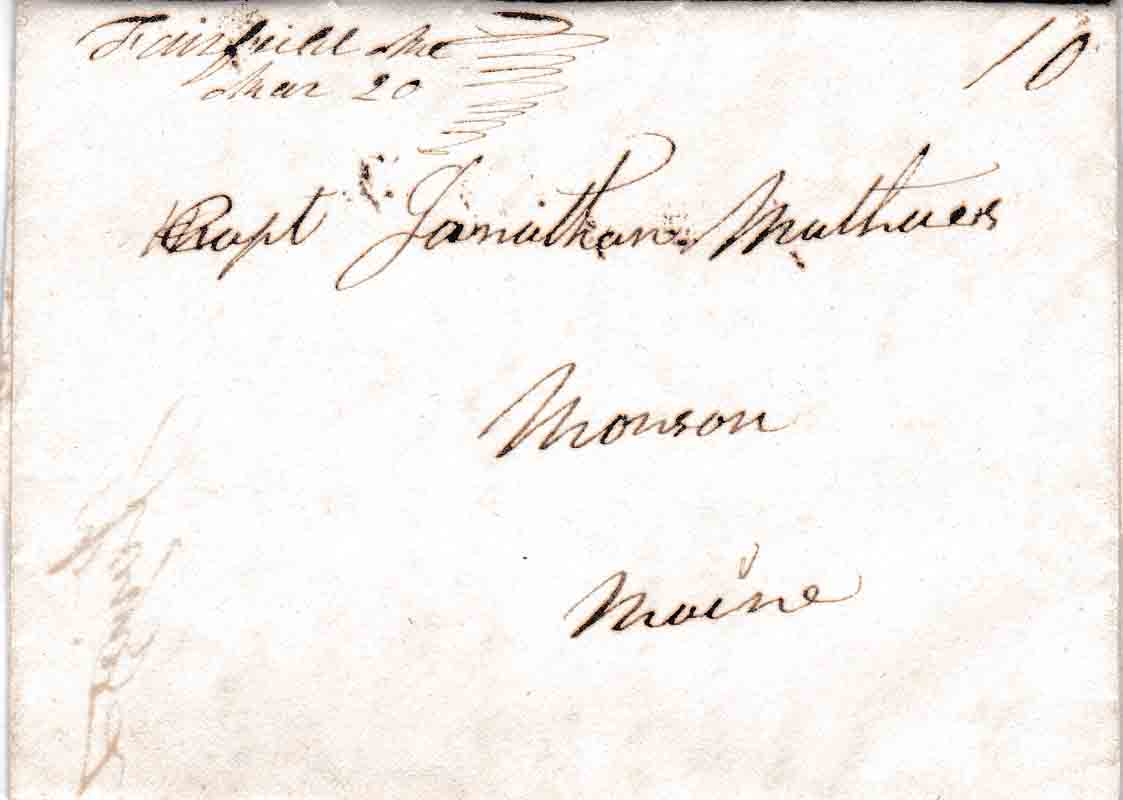 Fairfield Me
Mar 20
10
Capt Jonathan Mathews
Monson
Maine